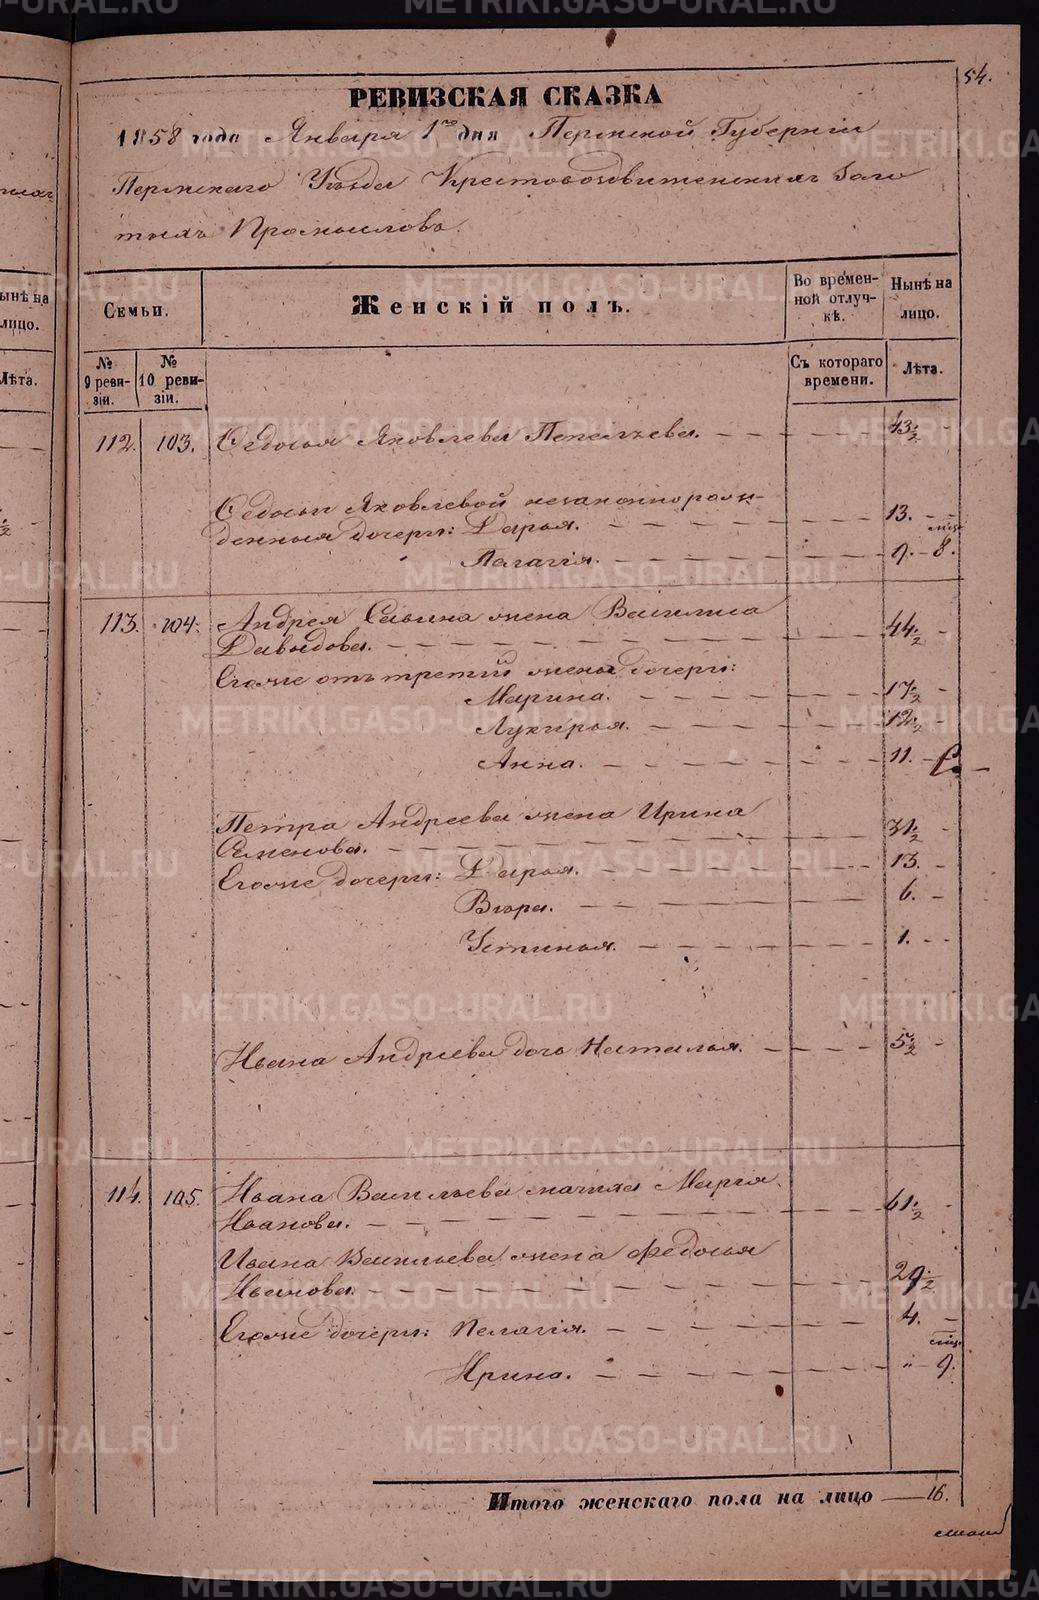 54.
РЕВИЗСКАЯ СКАЗКА
1858 года Января 1го дня Пермской Губерніи
Пермскаго Уѣзда Крестовоздвиженскихъ Золо
тыхъ Промысловъ.
Семьи.
Женскій полъ.
Во времен-
ной отлуч-
кѣ.
Нынѣ на
лицо.
№
9 реви-
зіи.
№
10 реви-
зіи.
Съ котораго
времени.
Лѣта.
112. 103. Ѳедосья Яковлева Пепеляева. 43 1/2
Ѳедосьи Яковлевой незаконнорож-
денныя дочери: Дарья. 13.
мѣс.
Пелагія. 9. 8.
113. 104. Андрея Савина жена Василиса
Давыдова. 44 1/2
Егоже отъ третій жены дочери:
Марина. 17 1/2
Лукерья. 12 1/2
Анна. 11.
Петра Андреева жена Ирина
Семенова. 31 1/2
Егоже дочери: Дарья. 13.
Вѣра. 6.
Устинья. 1.
Ивана Андреева дочь Наталья. 5 1/2
114. 105. Ивана Васильева мачиха Марья
Иванова. 61 1/2
Ивана Васильева жена Федосья
Иванова. 29 1/2
Егоже дочери: Пелагія. 4.
мѣс.
Ирина. " 9.
Итого женскаго пола на лицо 16.
нынѣ на
лицо.
Лѣта.
METRIKI.GASO-URAL.RU